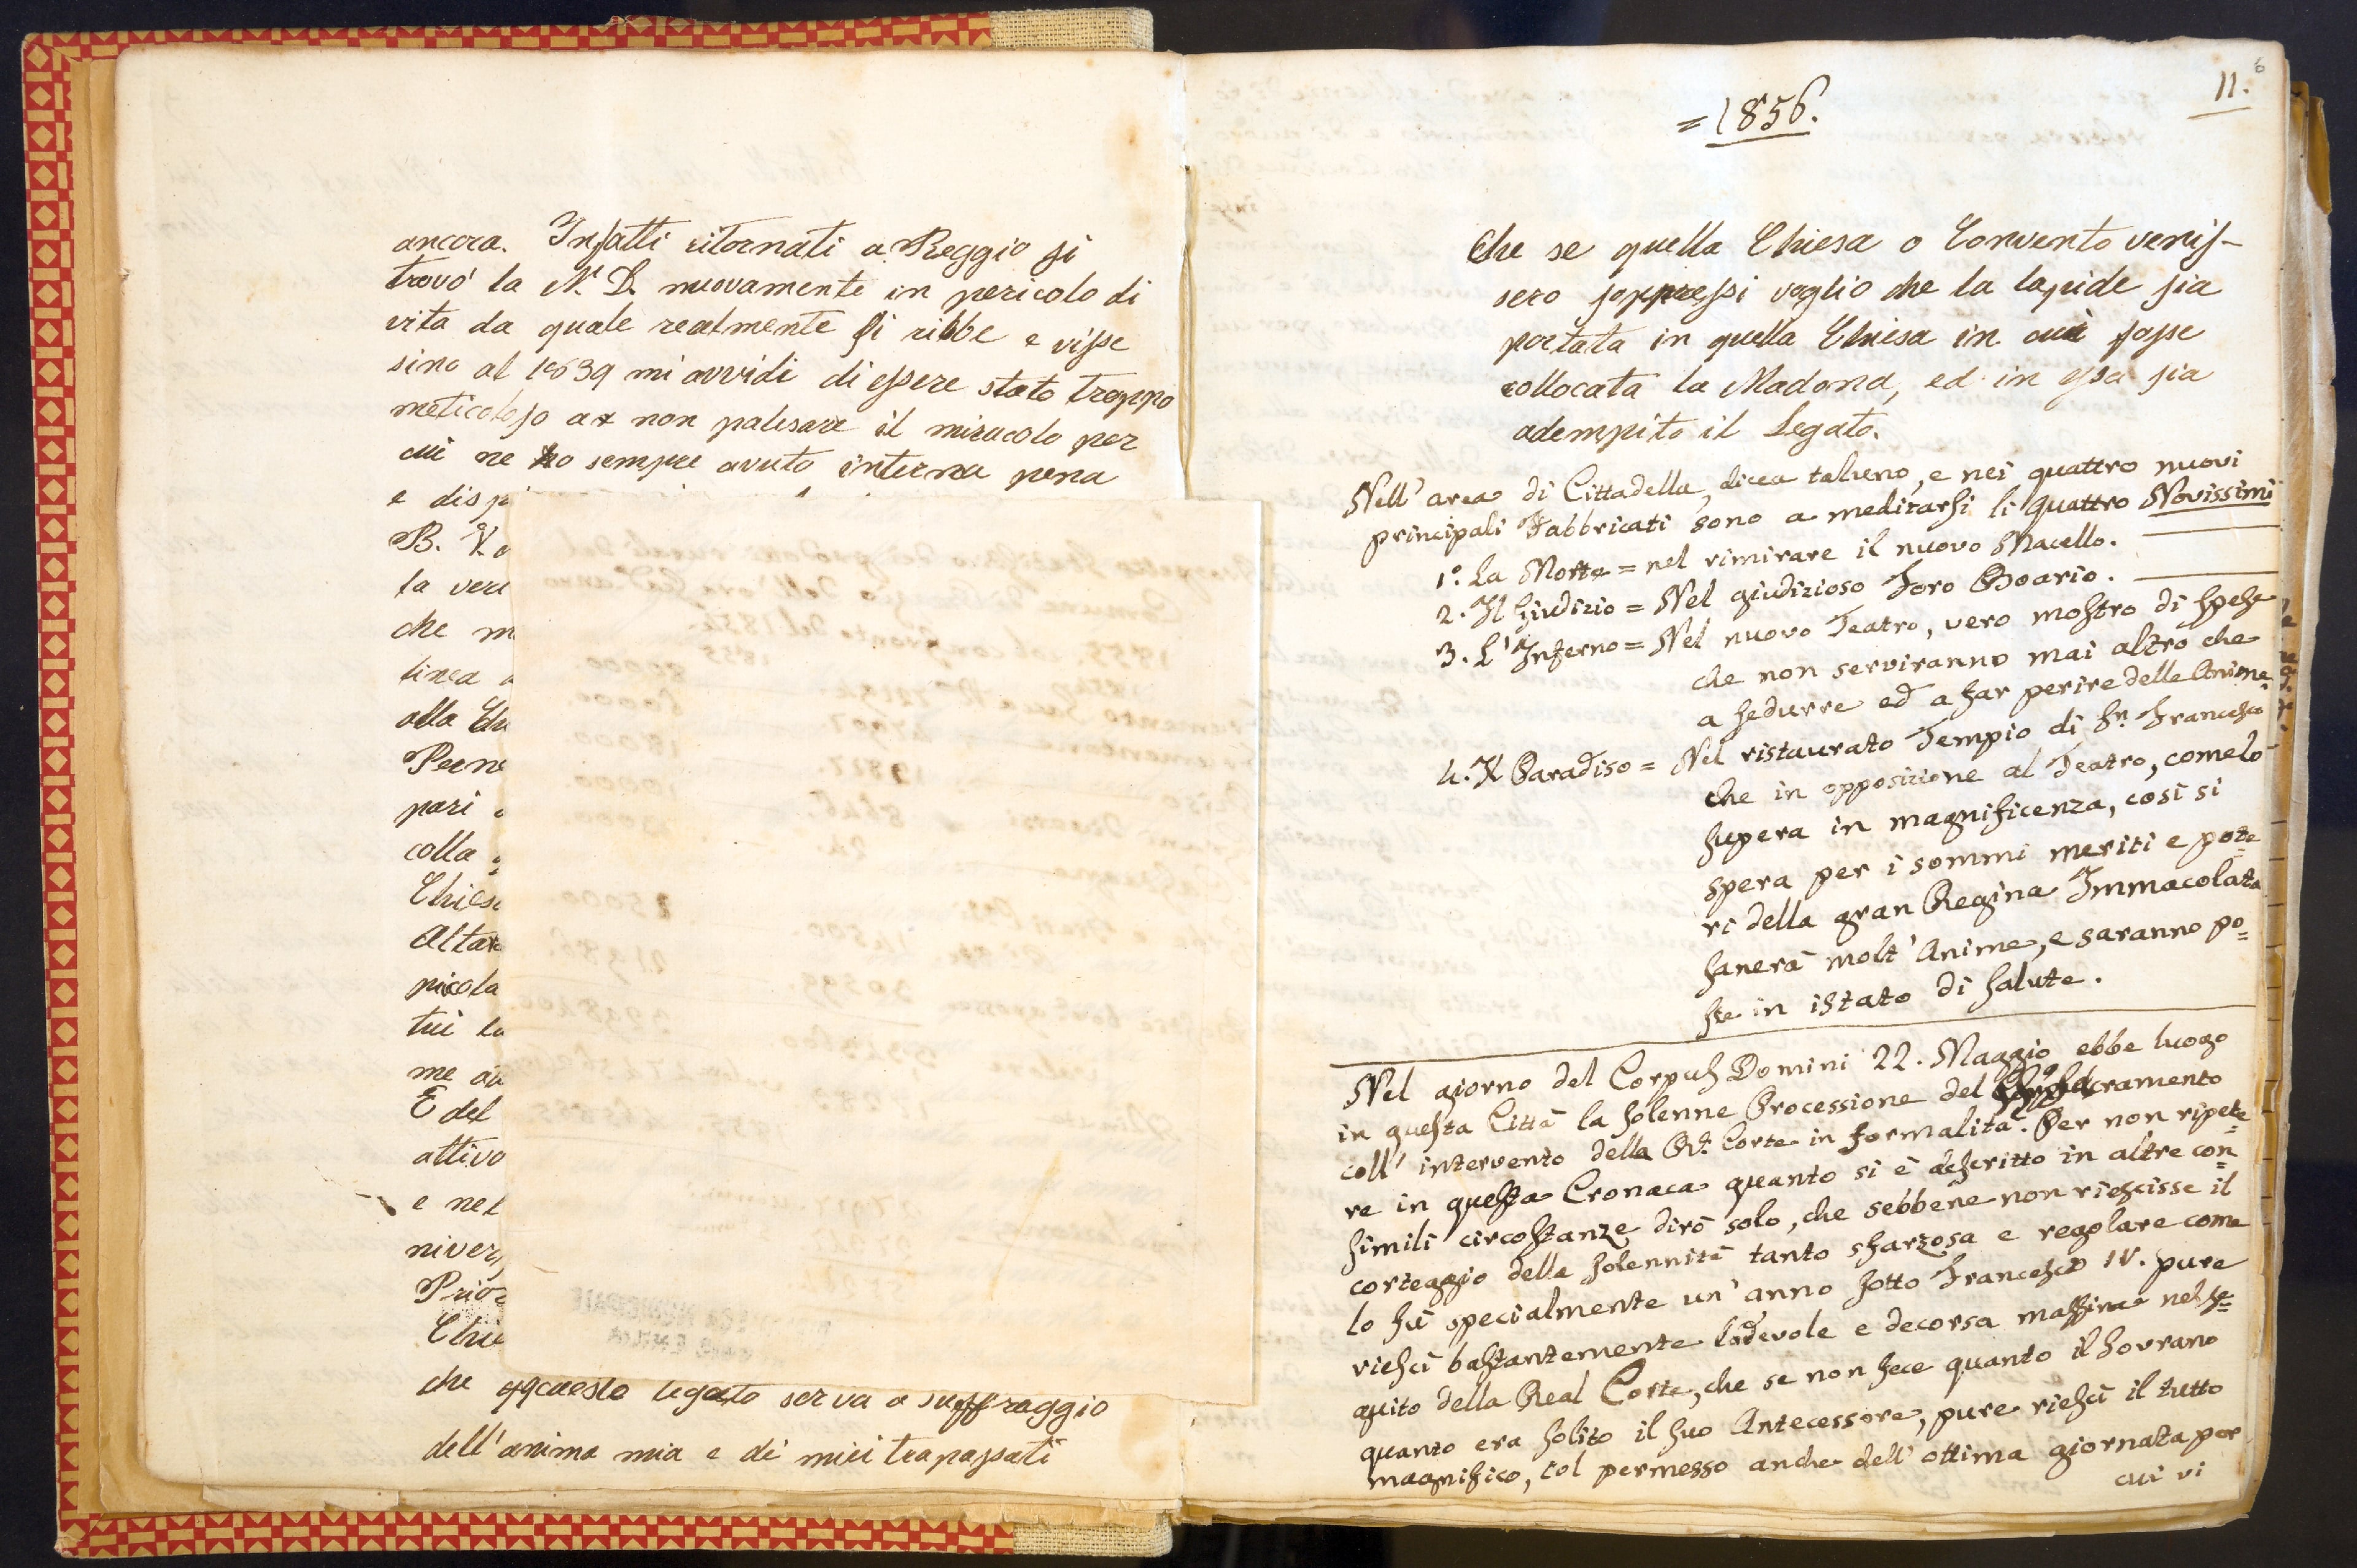 ancora. Infatti ritornati a Reggio si
trovò la N. D. nuovamente in pericolo di
vita da quale realmente si riebbe e visse
sino al 1839 mi avvidi di essere stato troppo
meticoloso a non palesare il miracolo per
cui ne ho sempre avuto interna pena
e disp
B. V.
la ver
che m
linea
alla Ch
Perne
pari
colla
Chies
Altar
picola
tui la
me au
E del
attivo
e nel
niver
Prior
Chie
che questo legato serva a suffraggio
dell'anima mia e di miei trapassati
11.
6
=1856.
Che se quella Chiesa o Convento venis-
sero soppressi voglio che la lapide sia
portata in quella Chiesa in cui fosse
collocata la Madona, ed in essa sia
adempito il Legato.
Nell' area di Cittadella, dicea taluno, e nei quattro nuovi
principali Fabbricati sono a meditarsi li quattro Novissimi
1.° La Morte = nel rimirare il nuovo Macello.
2. Il Giudizio = Nel giudizioso Foro Boario.
3. L' Inferno = Nel nuovo Teatro, vero mostro di spese
che non serviranno mai altro che
a sedurre ed a far perire delle Anime.
4. Il Paradiso = Nel ristaurato Tempio di Sn. Francesco
che in opposizione al Teatro, come lo
supera in magnificenza, così si
spera per i sommi meriti e pote=
ri della gran Regina Immacolata
sanerà molt' Anime, e saranno po=
ste in istato di salute.
Nel giorno del Corpus Domini 22. Maggio ebbe luogo
in questa Città la solenne Processione del Sacramento
coll' intervento della Rl. Corte in formalità. Per non ripete=
re in questa Cronaca quanto si è descritto in altre con=
simili circostanze dirò solo, che sebbene non riescisse il
corteggio della solennità tanto sfarzosa e regolare come
lo fù specialmente un' anno sotto Francesco IV. pure
riescì bastantemente lodevole e decorsa massime nel se=
guito della Real Corte, che se non fece quanto il Sovrano
quanto era solito il suo Antecessore, pure riescì il tutto
magnifico, col permesso anche dell' ottima giornata per
cui vi